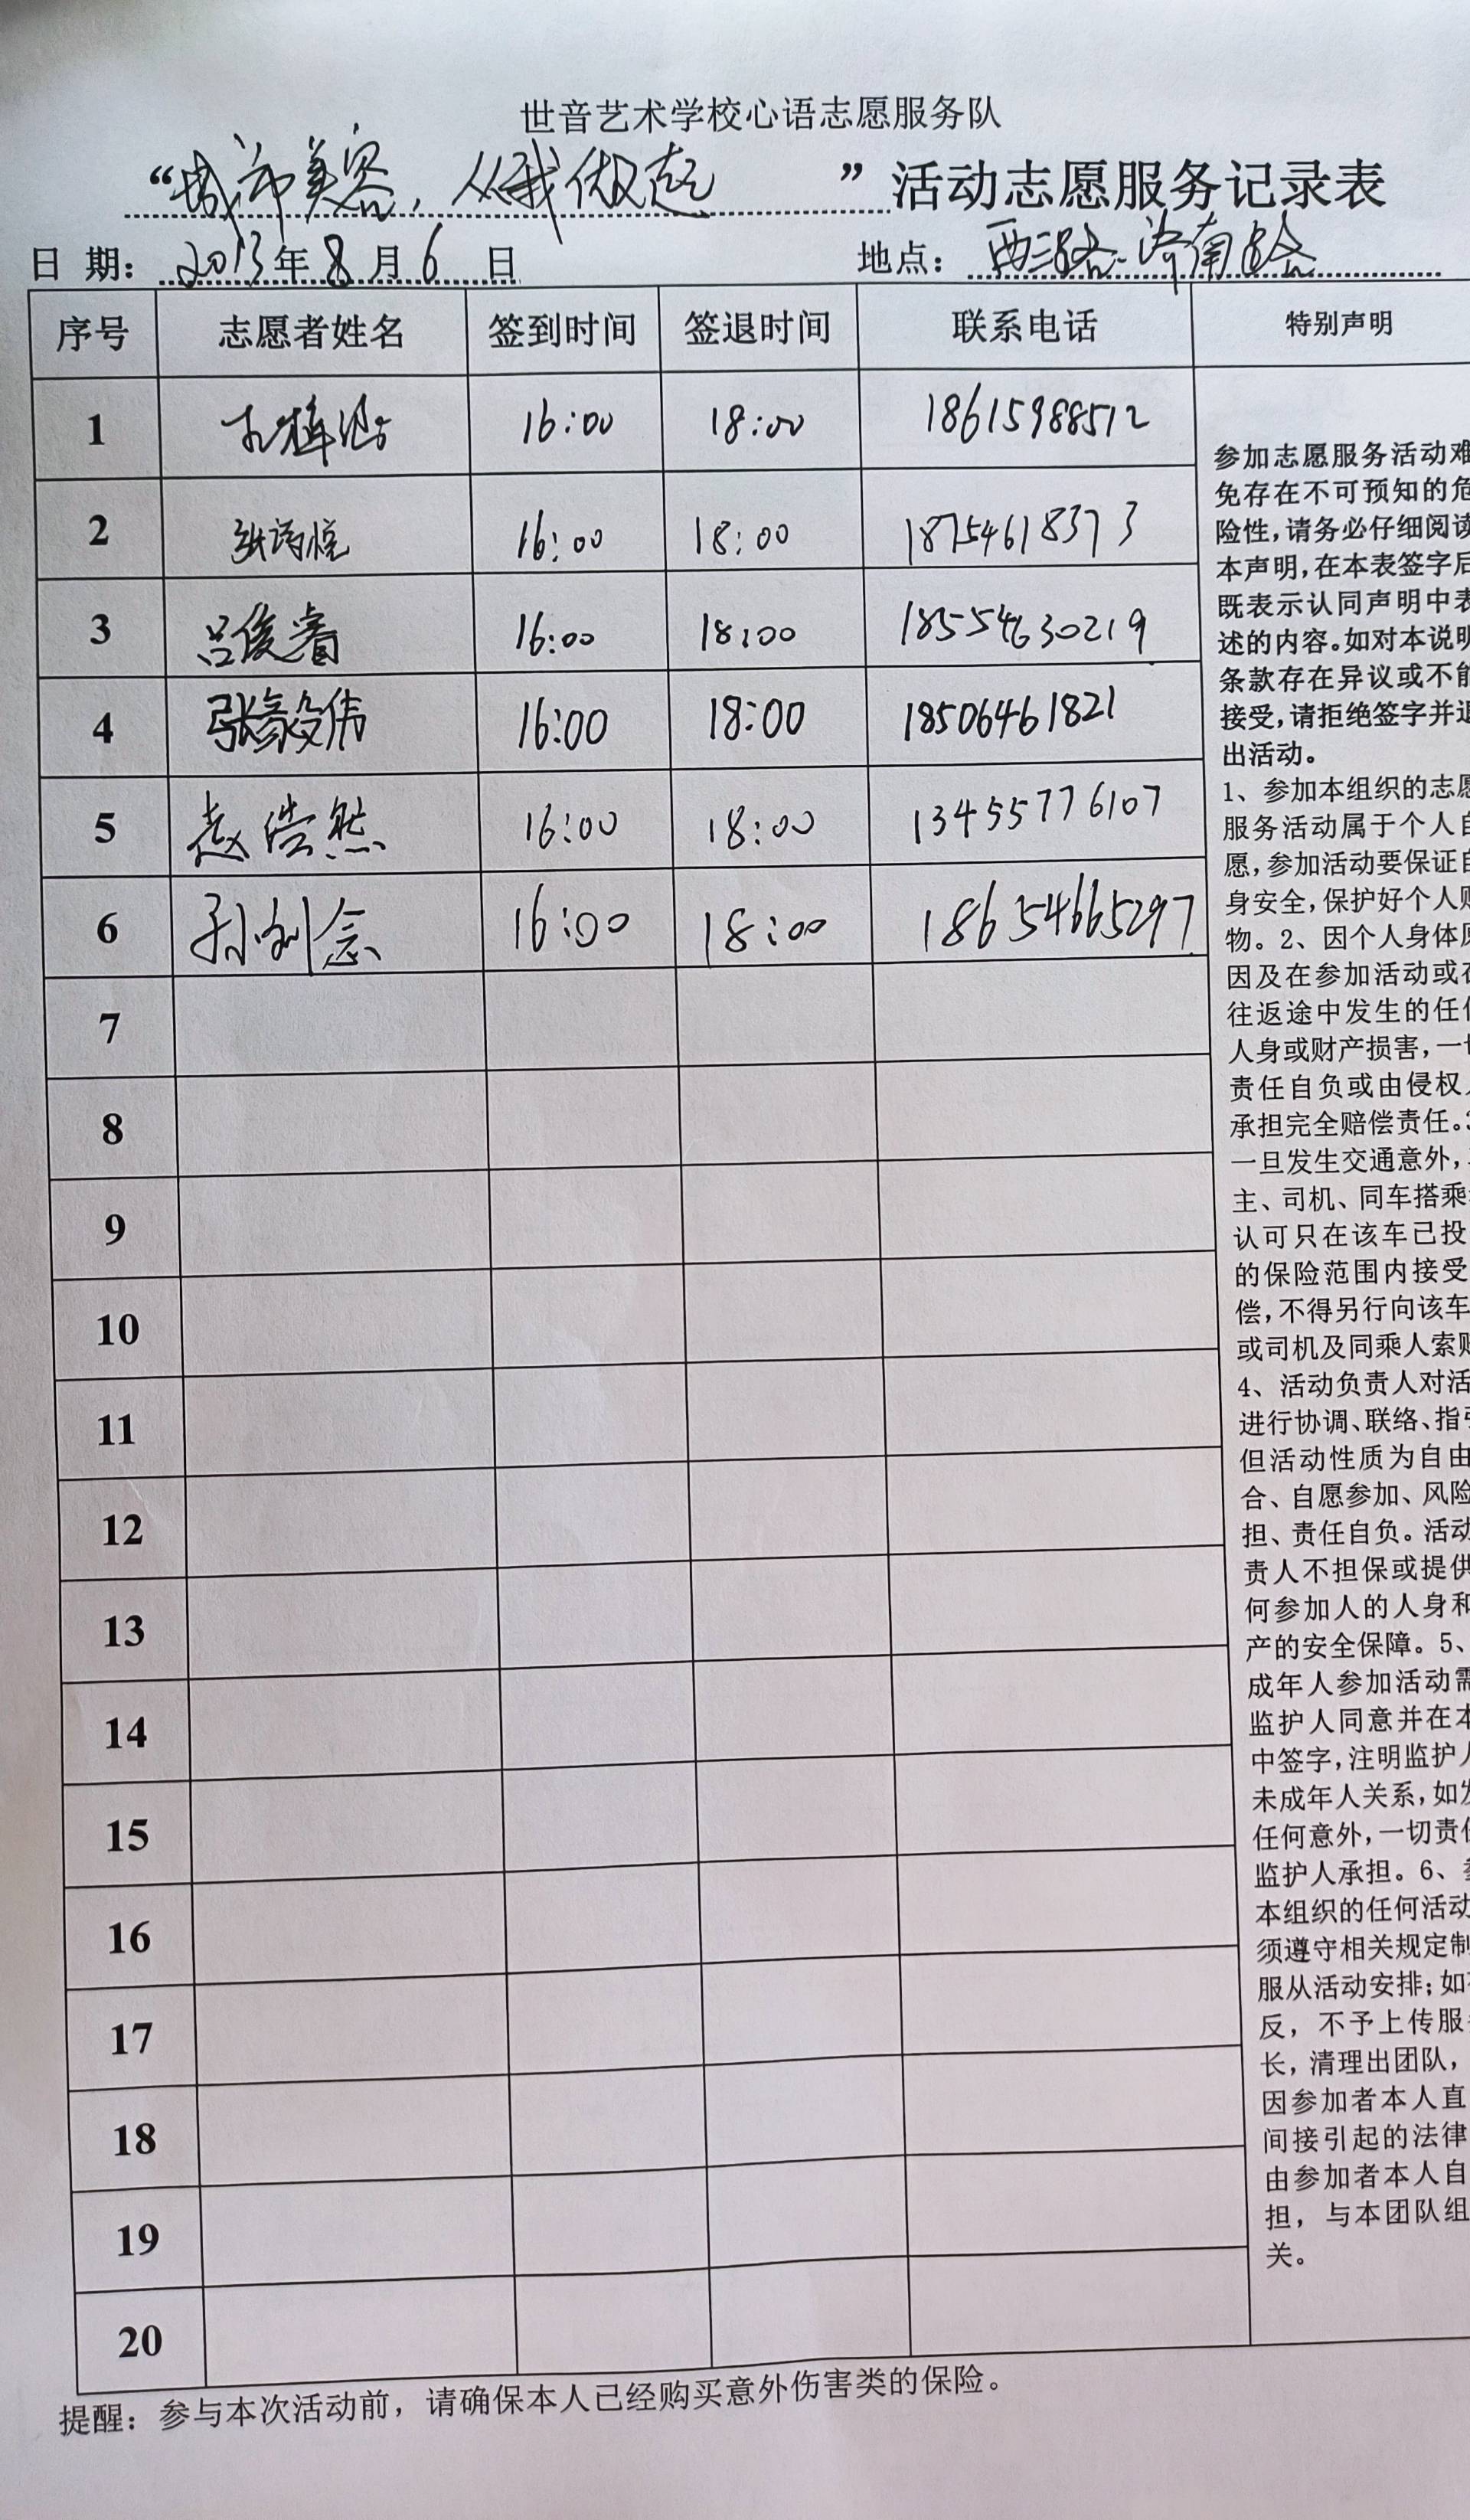 世音艺术学校心语志愿服务队
“城市美容，从我做起”活动志愿服务记录表
日 期：2013年8月6日 地点：西三路-济南路
序号 志愿者姓名 签到时间 签退时间 联系电话 特别声明
1 16:00 18:00 18615988512
2 张诗悦 16:00 18:00 18754618373
3 吕俊睿 16:00 18:00 18554630219
4 张豪伟 16:00 18:00 18506461821
5 赵浩然 16:00 18:00 13455776107
6 孙刘念 16:00 18:00 18654665297
7
8
9
10
11
12
13
14
15
16
17
18
19
20
参加志愿服务活动难
免存在不可预知的危
险性，请务必仔细阅读
本声明，在本表签字后
既表示认同声明中表
述的内容。如对本说明
条款存在异议或不能
接受，请拒绝签字并退
出活动。
1、参加本组织的志愿
服务活动属于个人自
愿，参加活动要保证自
身安全，保护好个人财
物。2、因个人身体原
因及在参加活动或在
往返途中发生的任何
人身或财产损害，一切
责任自负或由侵权人
承担完全赔偿责任。3
一旦发生交通意外，
主、司机、同车搭乘
认可只在该车已投
的保险范围内接受
偿，不得另行向该车
或司机及同乘人索赔
4、活动负责人对活
进行协调、联络、指引
但活动性质为自由
合、自愿参加、风险
担、责任自负。活动
责人不担保或提供
何参加人的人身和
产的安全保障。5、
成年人参加活动需
监护人同意并在本
中签字，注明监护人
未成年人关系，如发
任何意外，一切责任
监护人承担。6、参
本组织的任何活动
须遵守相关规定制
服从活动安排；如有
反，不予上传服务
长，清理出团队，
因参加者本人直
间接引起的法律
由参加者本人自
担，与本团队组
关。
提醒：参与本次活动前，请确保本人已经购买意外伤害类的保险。